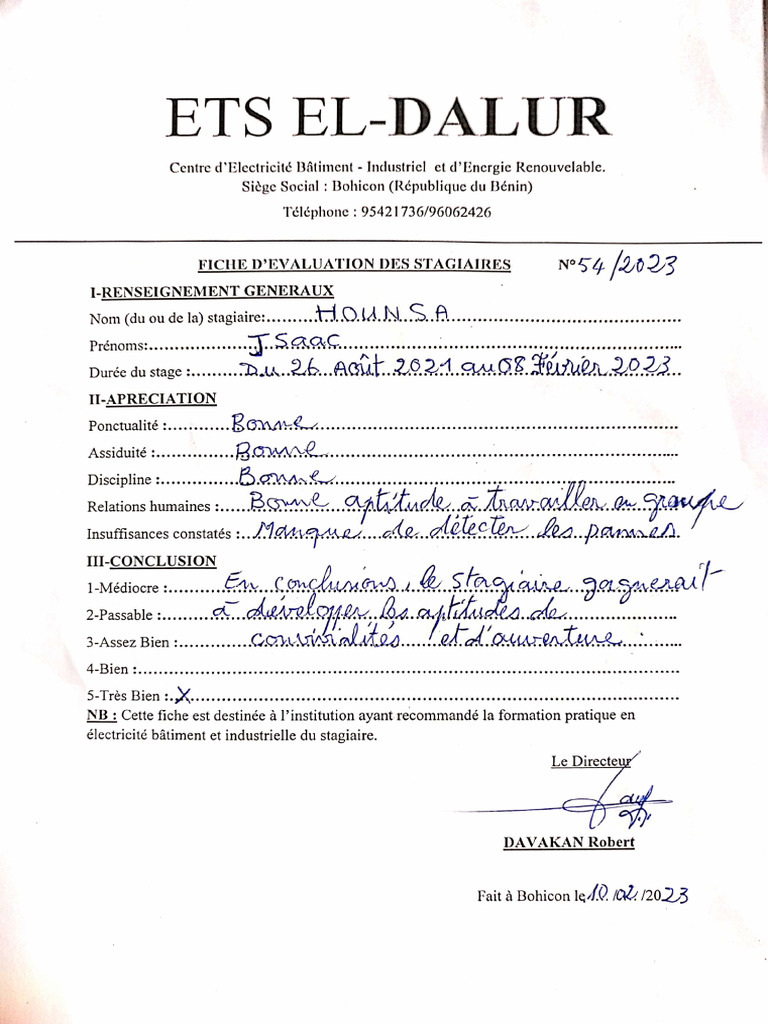 ETS EL-DALUR
Centre d'Electricité Bâtiment - Industriel et d'Energie Renouvelable.
Siège Social : Bohicon (République du Bénin)
Téléphone : 95421736/96062426
FICHE D'EVALUATION DES STAGIAIRES N° 54/2023
I-RENSEIGNEMENT GENERAUX
Nom (du ou de la) stagiaire: HOUNSA
Prénoms: Isaac
Durée du stage : Du 26 Août 2021 au 08 Février 2023
II-APRECIATION
Ponctualité : Bonne
Assiduité : Bonne
Discipline : Bonne
Relations humaines : Bonne aptitude à travailler en groupe
Insuffisances constatés : Manque de détecter les pannes
III-CONCLUSION
1-Médiocre : En conclusions, le stagiaire gagnerait
2-Passable : à développer les aptitudes de
3-Assez Bien : convivialités et d'ouverture
4-Bien :
5-Très Bien : X
NB : Cette fiche est destinée à l'institution ayant recommandé la formation pratique en
électricité bâtiment et industrielle du stagiaire.
Le Directeur
DAVAKAN Robert
Fait à Bohicon le 10/02/2023